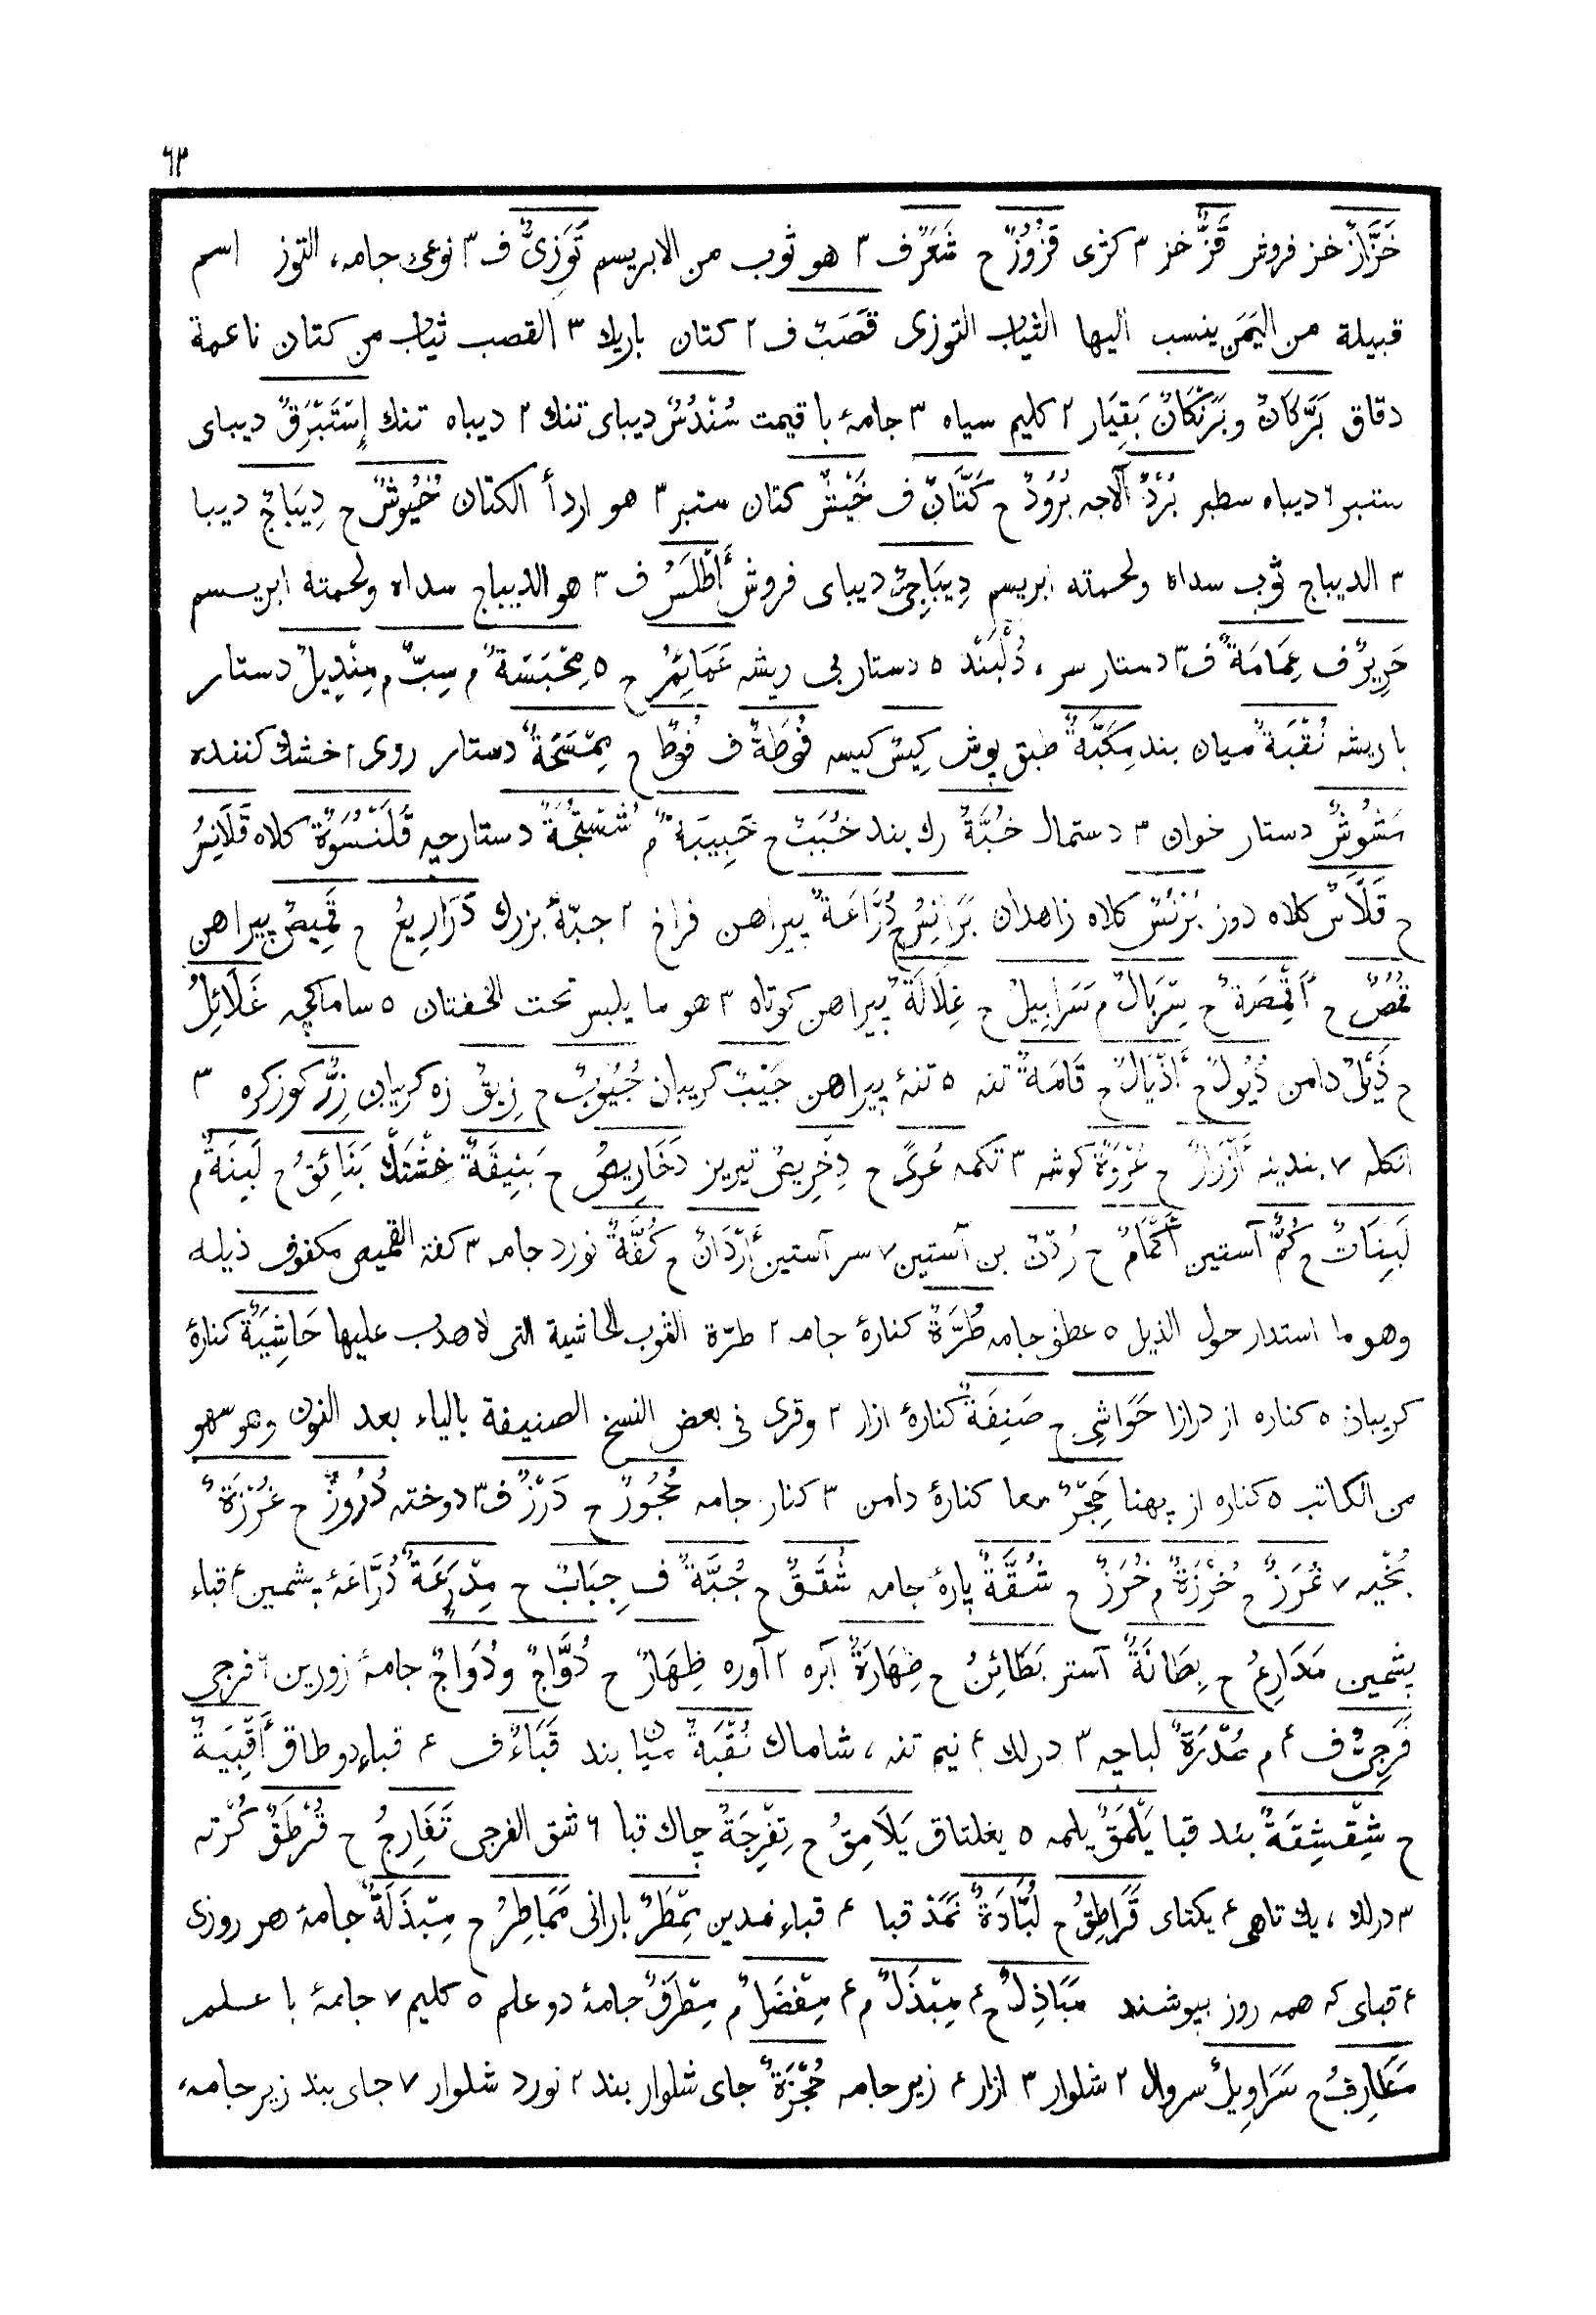 ٦٣
خَزَّازٌ خز فروش قَزٌّ خز ٣ كژى قُزُوزٌ ح شَعَرٌ ف ٣ هو ثوب من الابريسم تَوَّزِىٌّ ف ٣ نوعى جامه، التوز اسم
قبيلة من اليَمَن ينسب اليها الثياب التوزى قَصَبٌ ف ٢ كتان باريك ٣ القصب ثياب من كتان ناعمة
دقاق بَرَّكَانٌ وبَرْنَكَانٌ بَقِيَار ٢ كليم سياه ٣ جامۀ با قيمت سُنْدُسٌ ديباى تنك ٢ ديباه تنك إِسْتَبْرَقٌ ديباى
ستبر ٦ ديباه سطبر بُرْدٌ آلاجه بُرُودٌ ح كَتَّانٌ ف خَيْشٌ كتان ستبر ٣ هو اردأ الكتان خُيُوشٌ ح دِيبَاجٌ ديبا
٣ الديباج ثوب سداه ولحمته ابريسم دِيبَاجِىٌّ ديباى فروش أَطْلَسُ ف ٣ هو الديباج سداه ولحمته ابريسم
حَرِيرٌ ف عِمَامَةٌ ف ٣ دستار سر، دُلْبَنْد ٥ دستار بى ريشه عَمَائِمُ ح ٥ مِحْبَسَةٌ م سِبٌّ م مِنْدِيلٌ دستار
با ريشه نُقْبَةٌ ميان بند مِكَبَّةٌ طبق پوش كِيسٌ كيسه فُوطَةٌ ف فُوَطٌ ح مِمْسَحَةٌ دستار روى ٢ خشك كننده
مَشُوشٌ دستار خوان ٣ دستمال خُبَّةٌ رك بند خُبَبٌ ح خَبِيبَةٌ م شُسْتُجَّةٌ دستارچه قَلَنْسُوَةٌ كلاه قَلَانِسُ
ح قَلَّاسٌ كلاه دوز بُرْنُسٌ كلاه زاهدان بَرَانِسُ ح دُرَّاعَةٌ پيراهن فراخ ٢ جبّۀ بزرك دَرَارِيعُ ح قَمِيصٌ پيراهن
قُمُصٌ ح أَقْمِصَةٌ ح سِرْبَالٌ م سَرَابِيلُ ح غِلَالَةٌ پيراهن كوتاه ٣ هو ما يلبس تحت الخفتان ٥ ساماكچه غَلَائِلُ
ح ذَيْلٌ دامن ذُيُولٌ ح أَذْيَالٌ ح قَامَةٌ تنه ٥ تنۀ پيراهن جَيْبٌ كريبان جُيُوبٌ ح زِيقٌ زه كريبان زِرٌّ كوزكره ٣
انكله ٧ بندينه أَزْرَارٌ ح عُرْوَةٌ كوشه ٣ تكمه عُرًى ح دِخْرِيصٌ تيريز دَخَارِيصُ ح بَنِيقَةٌ خشتك بَنَائِقُ ح لَبِنَةٌ م
لَبِنَاتٌ ح كُمٌّ آستين أَكْمَامٌ ح رُدْنٌ بن آستين ٧ سر آستين أَرْدَانٌ ح كُفَّةٌ نورد جامه ٣ كفة القميص مكفوف ذيله
وهو ما استدار حول الذيل ٥ عطف جامه طُرَّةٌ كنارۀ جامه ٢ طرّة الثوب الحاشية التى لا هدب عليها حَاشِيَةٌ كنارۀ
كريبان ٥ كناره از درازا حَوَاشِى ح صَنِفَةٌ كنارۀ ازار ٢ وقرى فى بعض النسخ الصنيفة بالياء بعد النون وهو سهو
من الكاتب ٥ كناره از پهنا حِجْرٌ معا كنارۀ دامن ٣ كنار جامه حُجُورٌ ح دَرْزٌ ف ٣ دوخته دُرُوزٌ ح غُرْزَةٌ
بُخْيه ٧ غُرَزٌ ح خُرْزَةٌ م خُرَزٌ ح شُقَّةٌ پارۀ جامه شُقَقٌ ح جُبَّةٌ ف جِبَابٌ ح مِدْرَعَةٌ دُرَّاعَۀ پشمين ٤ قباء
پشمين مَدَارِعُ ح بِطَانَةٌ آستر بَطَائِنُ ح ظِهَارَةٌ آبره ٢ آوره ظِهَارٌ ح دُوَّاجٌ ودُوَاجٌ جامۀ زورين ٦ فرجى
فَرَجِىٌّ ف ٤ م صُدْرَةٌ لباچه ٣ درلك ٤ نيم تنه، شاماك نُقْبَةٌ ميان بند قَبَاءٌ ف ٤ قباء دو طاق أَقْبِيَةٌ
ح شِقْشِقَةٌ بند قبا يَلْمَقٌ يلمه ٥ يغلتاق يَلَامِقُ ح تِفْرِجَةٌ چاك قبا ٦ شق الفرجى تَفَارِجُ ح قُرْطَقٌ كُرْته
٣ درلك، يك تاهى ٤ يكتاى قَرَاطِقُ ح لُبَّادَةٌ نَمَدْ قبا ٤ قباء نمدين مِمْطَرٌ بارانى مَمَاطِرُ ح مِبْذَلَةٌ جامۀ هر روزى
٤ قباى كه همه روز بپوشند مَبَاذِلُ ح ٤ مِبْذَلٌ م ٤ مِفْضَلٌ م مِطْرَفٌ جامۀ دو علم ٥ كليم ٧ جامۀ با علم
مَطَارِفُ ح سَرَاوِيلُ سروال ٢ شلوار ٣ ازار ٤ زير جامه حُجْزَةٌ جاى شلوار بند ٢ نورد شلوار ٧ جاى بند زير جامه